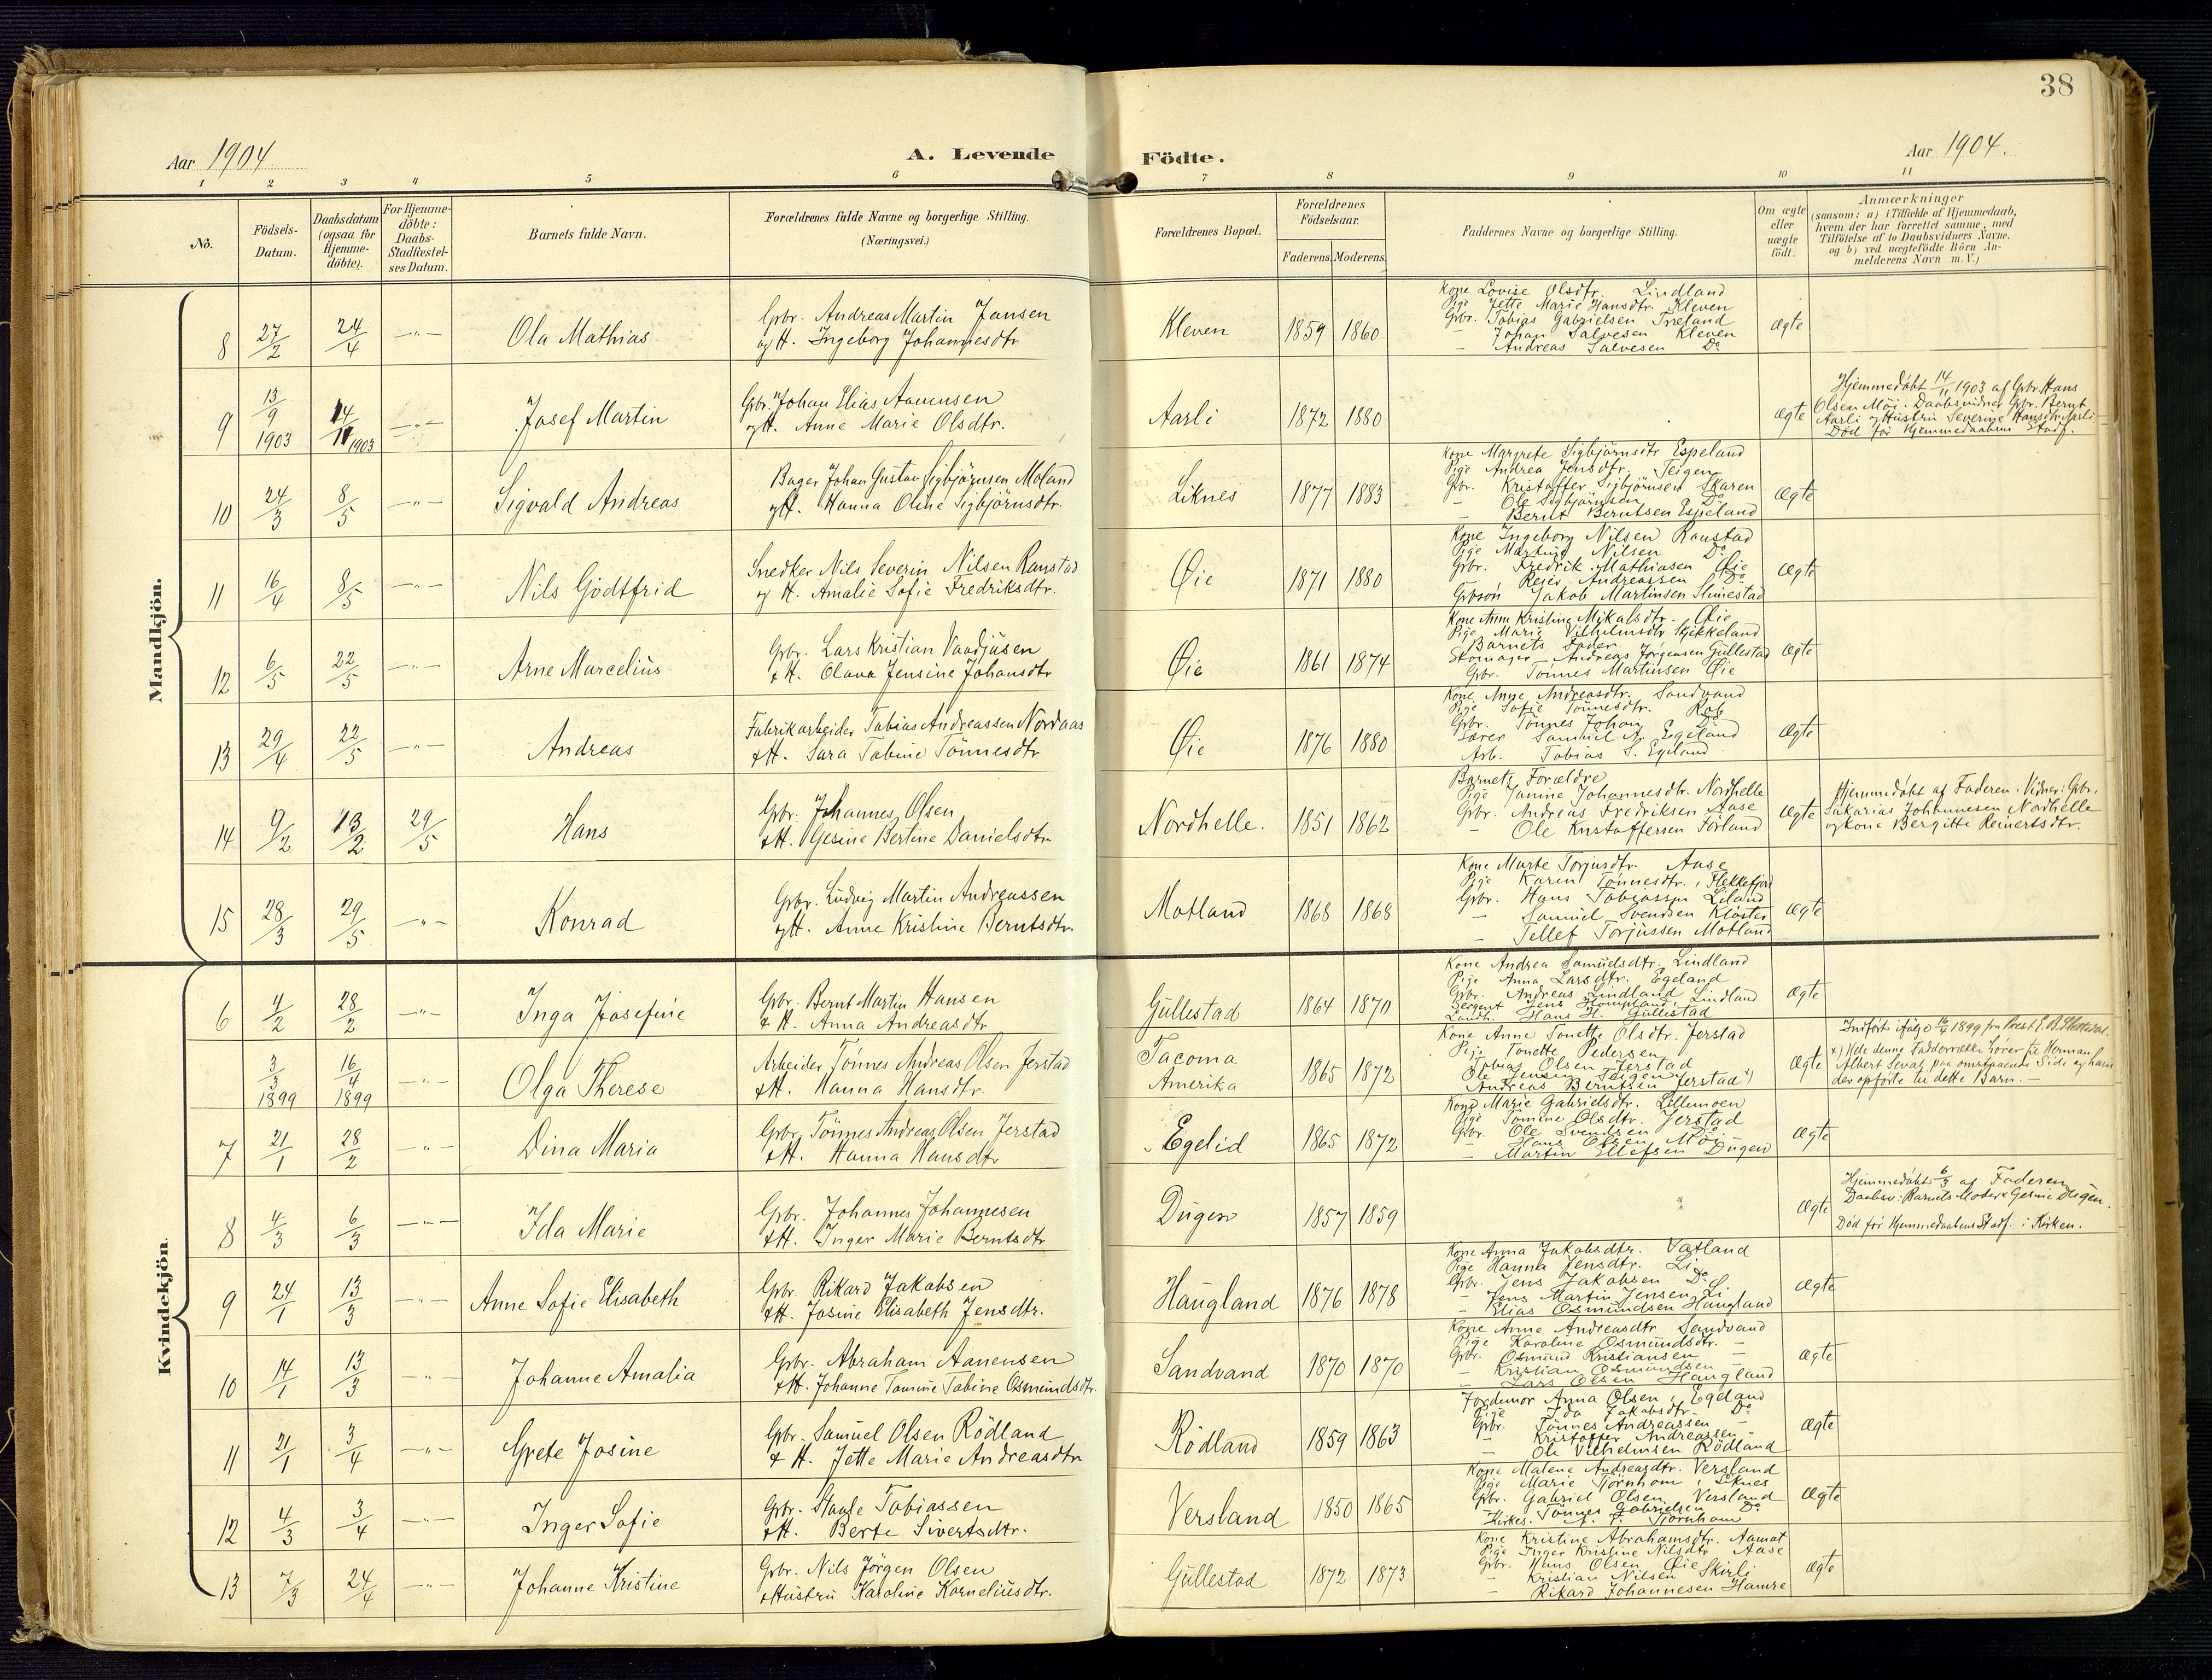 38
Aar 1904
A. Levende
Födte.
Aar 1904.
1 2 3 4 5 6 7 8 9 10 11
No.
Födsels-
Datum.
Daabsdatum
(ogsaa for
Hjemme-
döbte).
For Hjemme-
döbte:
Daabs-
Stadfæstel-
ses Datum.
Barnets fulde Navn.
Forældrenes fulde Navne og borgerlige Stilling.
(Næringsvei.)
Forældrenes Bopæl.
Forældrenes
Födselsaar.
Faderens. Moderens.
Faddernes Navne og borgerlige Stilling.
Om ægte
eller
uægte
födt.
Anmærkninger
(saasom: a) i Tilfælde af Hjemmedaab,
hvem der har forrettet samme, med
Tilföielse af to Daabsvidners Navne.
og b) ved uægtefödte Börn An-
melderens Navn m. V.)
Mandkjön.
8 27/2 24/4 —"— Ola Mathias
Gbr. Andreas Martin Jansen
og H. Ingeborg Johannesdtr
Kleven 1859 1860
Kone Lovise Olsdtr. Lindland
Pige Jette Marie Hansdtr. Kleven
Gbr. Tobias Gabrielsen Træland
— Johan Salvesen Kleven
— Andreas Salvesen Do
Ægte
9 13/9 1903 14/11 1903 —"— Josef Martin
Gbr. Johan Elias Aanensen
og H. Anne Marie Olsdtr.
Aarli 1872 1880
Ægte
Hjemmedöbt 14/11 1903 af Gbr. Hans
Olsen Möi. Daabsvidner Gbr. Bernt
Aarli og Hustru Severine Hansdtr. Aarli
Död för Hjemmedaabens Stadf.
10 24/3 8/5 —"— Sigvald Andreas
Bager Johan Gustav Sigbjörnsen Moland
og H. Hanna Oline Sigbjörnsdtr.
Liknes 1877 1883
Kone Margrete Sigbjörnsdtr Espeland
Pige Andrea Jensdtr. Teigen
Gbr. Kristoffer Sigbjörnsen Skaren
— Ole Sigbjörnsen Do
— Bernt Berntsen Espeland
Ægte
11 16/4 8/5 —"— Nils Godtfrid
Snedker Nils Severin Nilsen Ranstad
og H. Amalie Sofie Fredriksdtr.
Øie 1871 1880
Kone Ingeborg Nilsen Raustad
Pige Martine Nilsen Do
Gbr. Fredrik Mathiasen Øie
Reier Andreassen Do
Gbrsön Jakob Martinsen Stunestad
Ægte
12 6/5 22/5 —"— Arne Marcelius
Gbr. Lars Kristian Vaadjusen
& H. Olava Jensine Johansdtr
Øie 1861 1874
Kone Anna Kristine Mikalsdtr. Øie
Pige Marie Vilhelmsdtr. Skjekkeland
Barnets Fader
Skomager Andreas Jörgensen Gullestad
Gbr. Tönnes Martinsen Øie
Ægte
13 29/4 22/5 —"— Andreas
Fabrikarbeider Tobias Andreassen Nordaas
& H. Sara Tobine Tönnesdtr
Øie 1876 1880
Kone Anne Andreasdtr. Sandvand
Pige Sofie Tönnesdtr. Rob
Gbr. Tönnes Johan Do
Lærer Samuel A. Egeland
Arb. Tobias S. Egeland
Ægte
14 9/2 13/2 29/5 Hans
Gbr. Johannes Olsen
& H. Gesine Bertine Danielsdtr
Nordhelle. 1851 1862
Barnets Forældre
Pige Janine Johannesdtr. Nordhelle
Gbr. Andreas Fredriksen Aase
— Ole Kristoffersen Förland
Ægte
Hjemmedöbt af Faderen. Vidner: Gbr.
Sakarias Johannesen Nordhelle
og kone Bergitte Reinertsdtr.
15 28/3 29/5 —"— Konrad
Gbr. Ludvig Martin Andreassen
og H. Anne Kristine Berntsdtr
Motland 1868 1868
Kone Marte Torjusdtr. Aase
Pige Karen Tönnesdtr., Flekkefjord
Gbr. Hans Tobiassen Liland
— Samuel Svendsen Kloster
— Tellef Torjussen Motland
Ægte
Kvindekjön.
6 4/2 28/2 —"— Inga Josefine
Gbr. Bernt Martin Hansen
& H. Anna Andreasdtr
Gullestad 1864 1870
Kone Andrea Samuelsdtr. Lindland
Pige Anna Larsdtr. Egeland
Gbr. Andreas Lindland, Lindland
Sergent Jens Hompland,
Landh. Hans H. Gullestad
Ægte
3/3 1899 16/4 1899 —"— Olga Therese
Arbeider Tönnes Andreas Olsen Jerstad
& H. Hanna Hansdtr.
Tacoma
Amerika
1865 1872
Kone Anne Tonette Olsdtr. Jerstad
Pige Tonette Pedersen
Tobias Olsen Jerstad
Ole Jensen Teigen
Andreas Berntsen Jerstad x)
Ægte
Indfört ifölge 16/4 1899 fra Prest E.B.
x) Hele denne Fadderrække hörer til Herman
Albert Sevag paa omstaaende Side og ham
der opförte til dette Barn. —
7 21/1 28/2 —"— Dina Maria
Gbr. Tönnes Andreas Olsen Jerstad
& H. Hanna Hansdtr
Egelid 1865 1872
Kone Marie Gabrielsdtr. Lillemoen
Pige Tomine Olsdtr. Jerstad
Gbr. Ole Svendsen Do.
— Hans Olsen Möi
— Martin Ellefsen Dugen
Ægte
8 4/3 6/3 —"— Ida Marie
Gbr. Johannes Johannesen
& H. Inger Marie Berntsdtr
Dugen 1857 1859
Ægte
Hjemmedöbt 6/3 af Faderen
Daabsv: Barnets Moder & Gesine Dugen.
Död för Hjemmedaabens Stadf. i Kirken.
9 24/1 13/3 —"— Anne Sofie Elisabeth
Gbr. Rikard Jakobsen
& H. Josine Elisabeth Jensdtr.
Haugland 1876 1878
Kone Anna Jakobsdtr. Vatland
Pige Hanna Jensdtr. Li
Gbr. Jens Jakobsen Do
— Jens Martin Jensen Li
— Elias Osmundsen Haugland
Ægte
10 14/1 13/3 —"— Johanne Amalia
Gbr. Abraham Aanensen
& H. Johanne Tomine Tobine Osmundsdtr.
Sandvand 1870 1870
Kone Anne Andreasdtr Sandvand
Pige Karoline Osmundsdtr. —
Gbr. Osmund Kristiansen —
— Kristian Osmundsen —
— Lars Olsen Haugland
Ægte
11 21/1 3/4 —"— Grete Josine
Gbr. Samuel Olsen Rödland
& H. Jette Marie Andreasdtr
Rödland 1859 1863
Jordemor Anna Olsen, Egeland
Pige Ida Jakobsdtr. Do
Gbr. Tönnes Andreassen —
— Kristoffer Andreassen —
— Ole Vilhelmsen Rödland
Ægte
12 4/3 3/4 —"— Inger Sofie
Gbr. Staale Tobiassen
& H. Berte Sivertsdtr.
Versland 1850 1865
Kone Malene Andreasdtr. Versland
Pige Marie Tjörnhom, Liknes
Gbr. Gabriel Olsen Versland
— Tönnes Gabrielsen Do
Kirkes. A. T. Tjörnhom
Ægte
13 7/3 24/4 —"— Johanne Kristine
Gbr. Nils Jörgen Olsen
& Hustru Karoline Korneliusdtr.
Gullestad 1872 1873
Kone Kristine Abrahamsdtr. Aamot
Pige Inger Kristine Nilsdtr Aase
Gbr. Hans Olsen Øie
— Kristian Nilsen Skirli
— Rikard Johannesen Hamre
Ægte